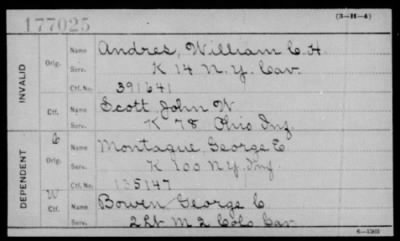 177025
(3-H-4)
INVALID
Orig.
Name Andres, William C. H.
Serv. K 14 N.Y. Cav.
Ctf. No. 391641
Ctf.
Name Scott John W
Serv. K 78 Ohio Inf
DEPENDENT
C
Orig.
Name Montague, George E
Serv. K 100 N.Y. Inf
Ctf. No. 135147
W
Ctf.
Name Bowen George C
Serv. 2 Lt M 2 Colo Cav